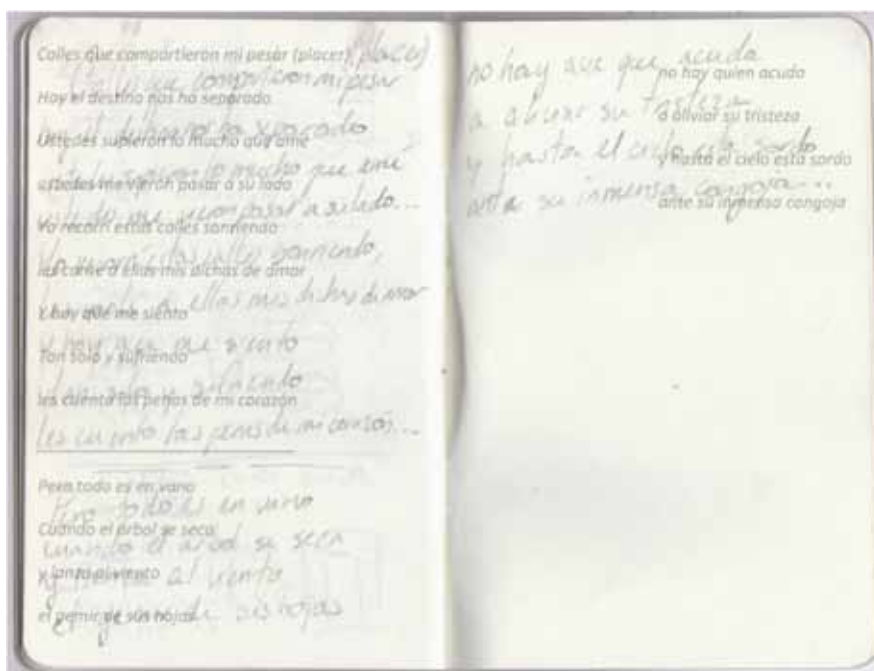 Calles que compartieron mi pesar (placer)
placer)
Calles que compartieron mi pesar
Hoy el destino nos ha separado
Hoy el destino ha separado
Ustedes supieron lo mucho que amé
supieron lo mucho que amé
ustedes me vieron pasar a su lado
me vieron pasar a su lado...
Yo recorrí estas calles sonriendo
calles sonriendo,
les conté a ellas mis dichas de amor
ellas mis dichas de amor
Y hoy que me siento
y hoy que me siento
Tan solo y sufriendo
tan solo y sufriendo
les cuento las penas de mi corazón
les cuento las penas de mi corazón...
Pero todo es en vano
Pero todo es en vano
Cuando el árbol se seca
cuando el árbol se seca
y lanza al viento
al viento
el gemir de sus hojas
sus hojas
no hay que acuda
no hay quien acuda
a aliviar su tristeza
a aliviar su tristeza
y hasta el cielo está sordo
y hasta el cielo está sordo
ante su inmensa congoja...
ante su inmensa congoja